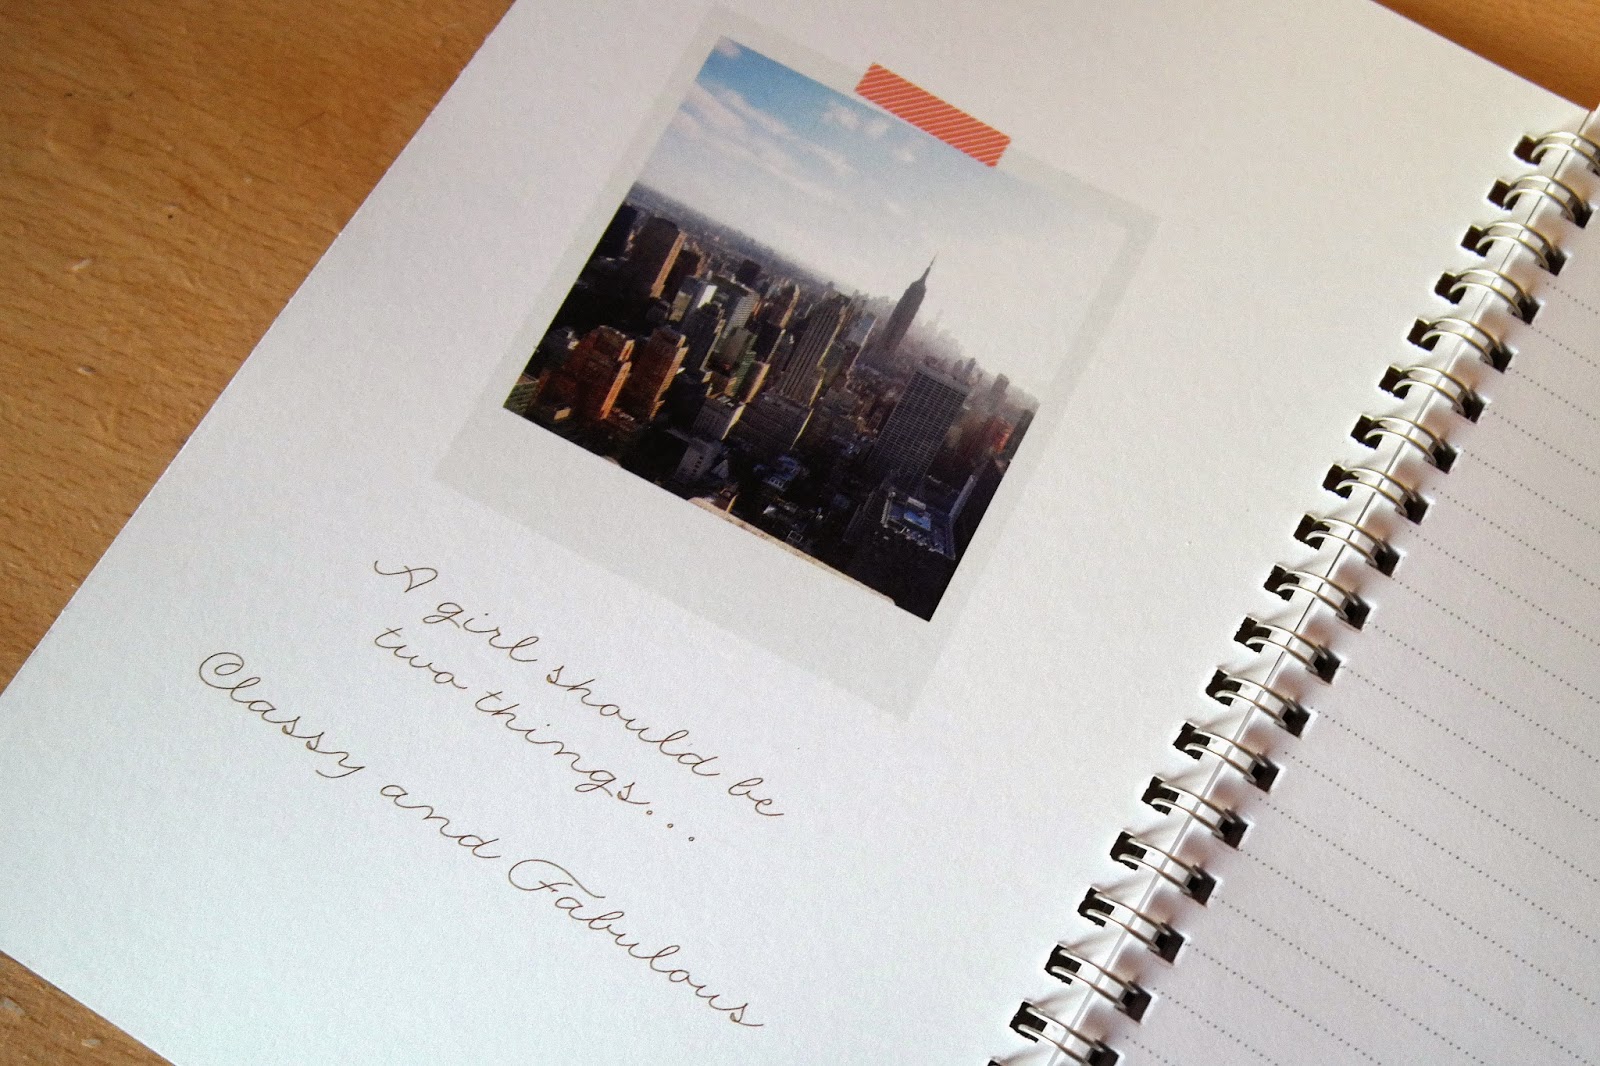 A girl should be
two things...
Classy and Fabulous